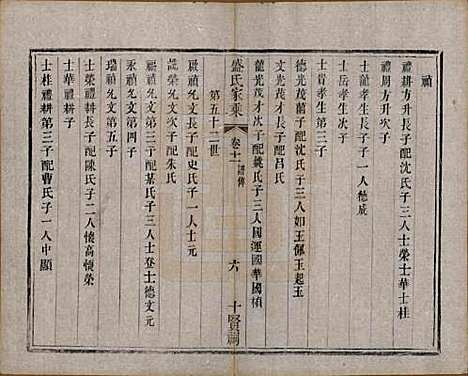 禎
禮耕方升長子配沈氏子三人士榮士華士桂
禮周方升次子
士龍孝生長子子一人德威
士岳孝生次子
士肯孝生第三子
德光茂蘭子配沈氏子三人如玉佩玉起玉
文光茂才長子配呂氏
龍光茂才次子配魏氏子三人國運國華國楨
盛氏家乘
卷十一
譜傳
六
十賢祠
第五十二世
禎允文長子配史氏子一人士元
榮允文次子配朱氏
禎允文第三子配葉氏子三人登士德文元
兆禎允文第四子
瑞禎允文第五子
士榮禮耕長子配陳氏子二人懷高懷榮
士華禮耕次子
士桂禮耕第三子配曹氏子一人中顯